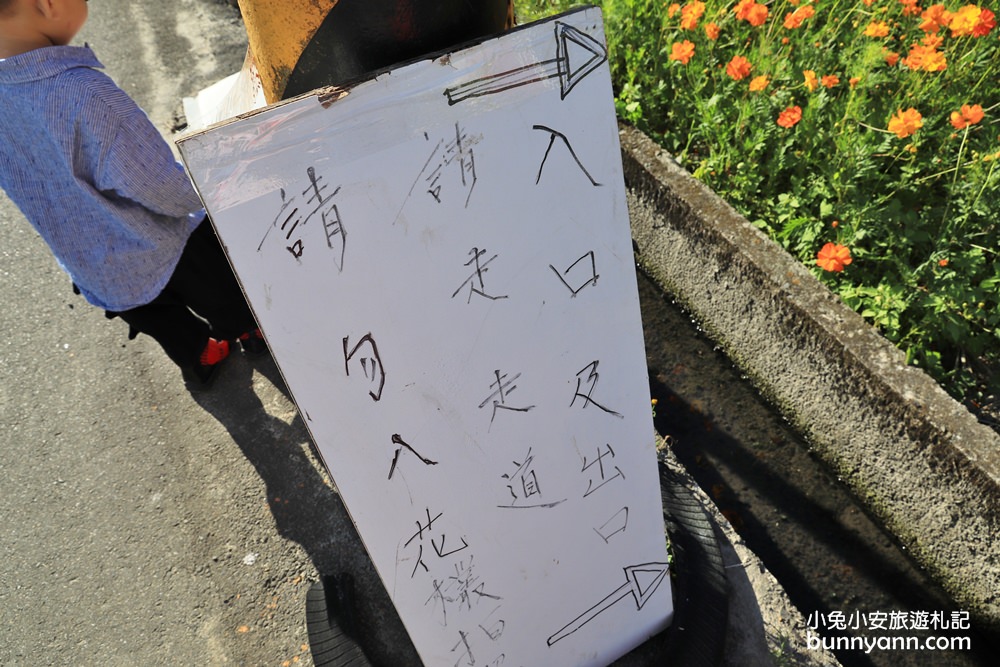 入口及出口
請走走道
請勿入花叢拍
小兔小安旅遊札記
bunnyann.com